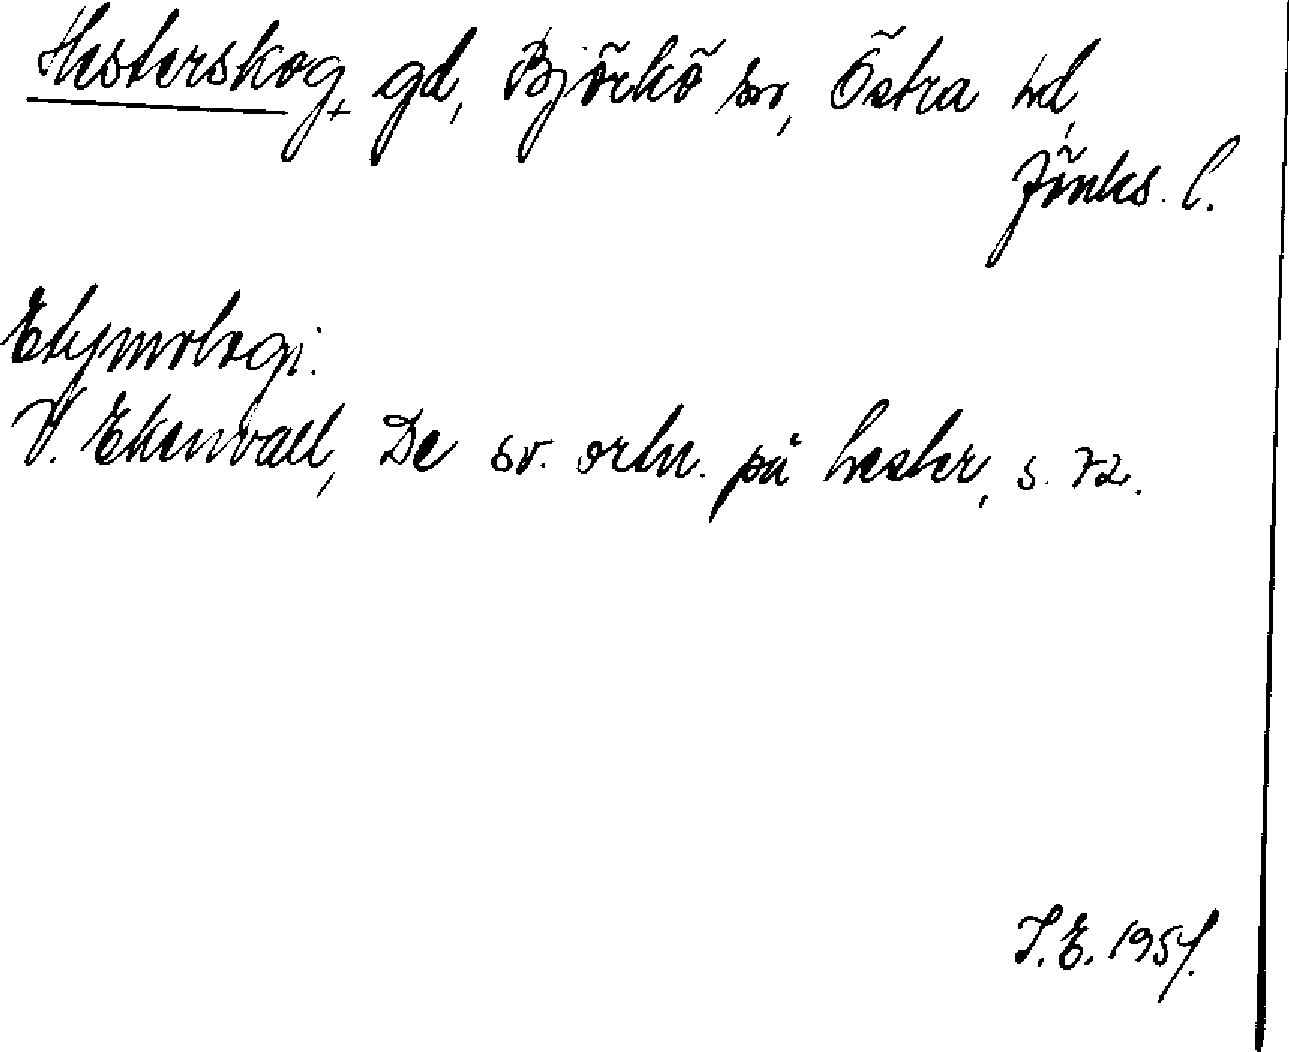 Hesterskog, gd, Björkö sn, Östra hd,
Jönks. l.
Etymologi.
V. Ekenvall, De sv. ortn. på hester, s. 72.
I.E. 1957.